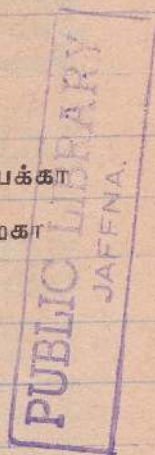 பக்கா
றகா
PUBLIC LIBRARY
JAFFNA.